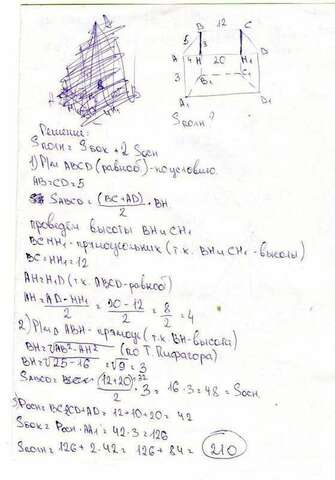 B 12 C
5 3
A 4 H 20 H₁ D
3 B₁ C₁
A₁ D₁
Sполн?
Решение:
Sполн = Sбок + 2 Sосн
1) Р/м ABCD (равноб) - по условию.
AB=CD=5
SABCD = (BC+AD)/2 · BH
проведём высоты BH и CH₁
BCHH₁ - прямоугольник (т.к. BH и CH₁ - высоты)
BC=HH₁=12
AH=H₁D (т.к. ABCD-равноб)
AH = AD-HH₁/2 = 20-12/2 = 8/2 = 4
2) Р/м ABH - прямоуг (т.к. BH-высота)
BH=√AB²-AH² (по Т. Пифагора)
BH=√25-16 = √9 = 3
SABCD = (12+20)/2 · 3 = 16·3=48 = Sосн
3) Pосн= BC+CD+AD= 12+10+20= 42
Sбок= Pосн·AA₁= 42·3=126
Sполн= 126+2·42= 126+84= 210